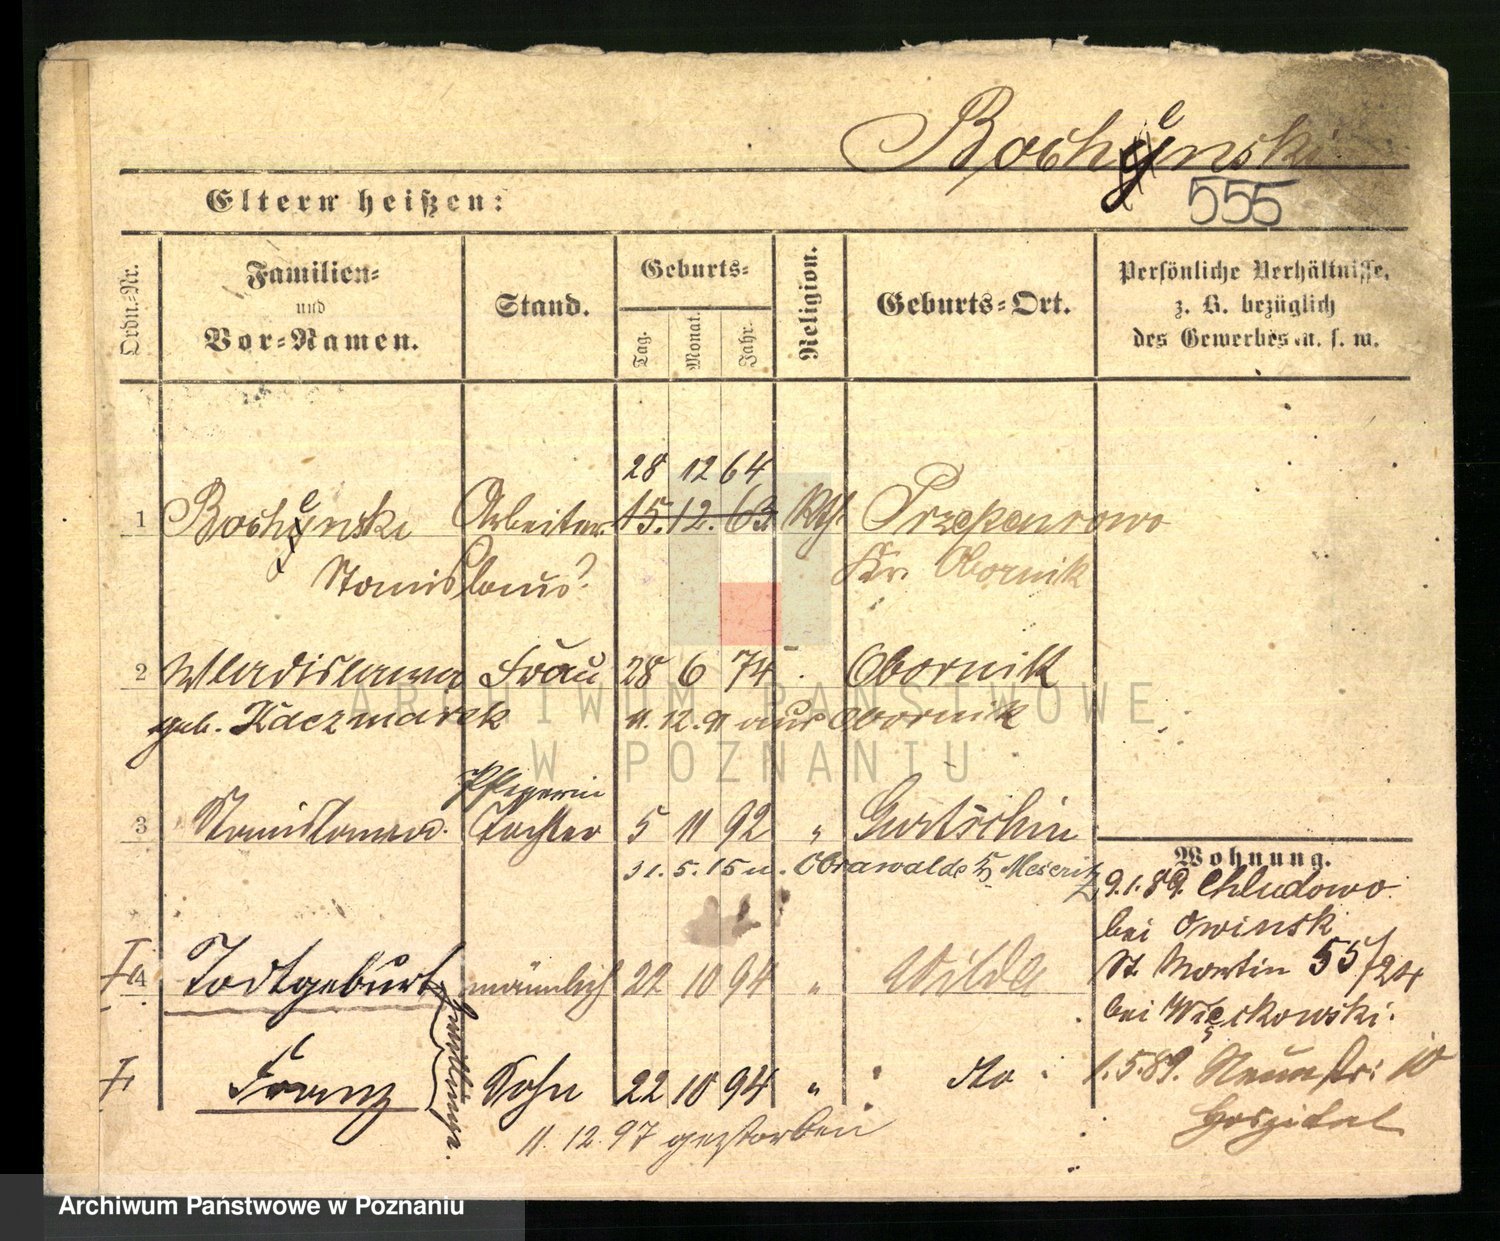 Bochenski
555
Eltern heißen:
Ordn.-Nr.
Familien-
und
Vor-Namen.
Stand.
Geburts-
Tag.
Monat.
Jahr.
Religion.
Geburts-Ort.
Persönliche Verhältnisse,
z. B. bezüglich
des Gewerbes u. s. w.
28 12 64
1 Bochenski Arbeiter 15. 12. 63 Kth. Przependowo
Stanislaus Kr. Obornik
2 Wladislawa Frau 28 6 74 Obornik
geb. Kaczmarek 11. 12. 91 aus Obornik
Pflegerin
3 Stanislawa. Tochter 5 11 92 " Gurtschin
31. 5. 15 n. Obrawalde b/ Meseritz
Wohnung.
9.1.89. Chludowo
bei Owinsk
St. Martin 55/24
bei Więckowski.
I 4 Todtgeburt männlich 22 10 94 " Wilda
Zwillinge.
I Franz Sohn 22 10 94 " do
11. 12. 97 gestorben
1.5.89. Neuestr: 10
Hospital
ARCHIWUM PAŃSTWOWE
W POZNANIU
Archiwum Państwowe w Poznaniu